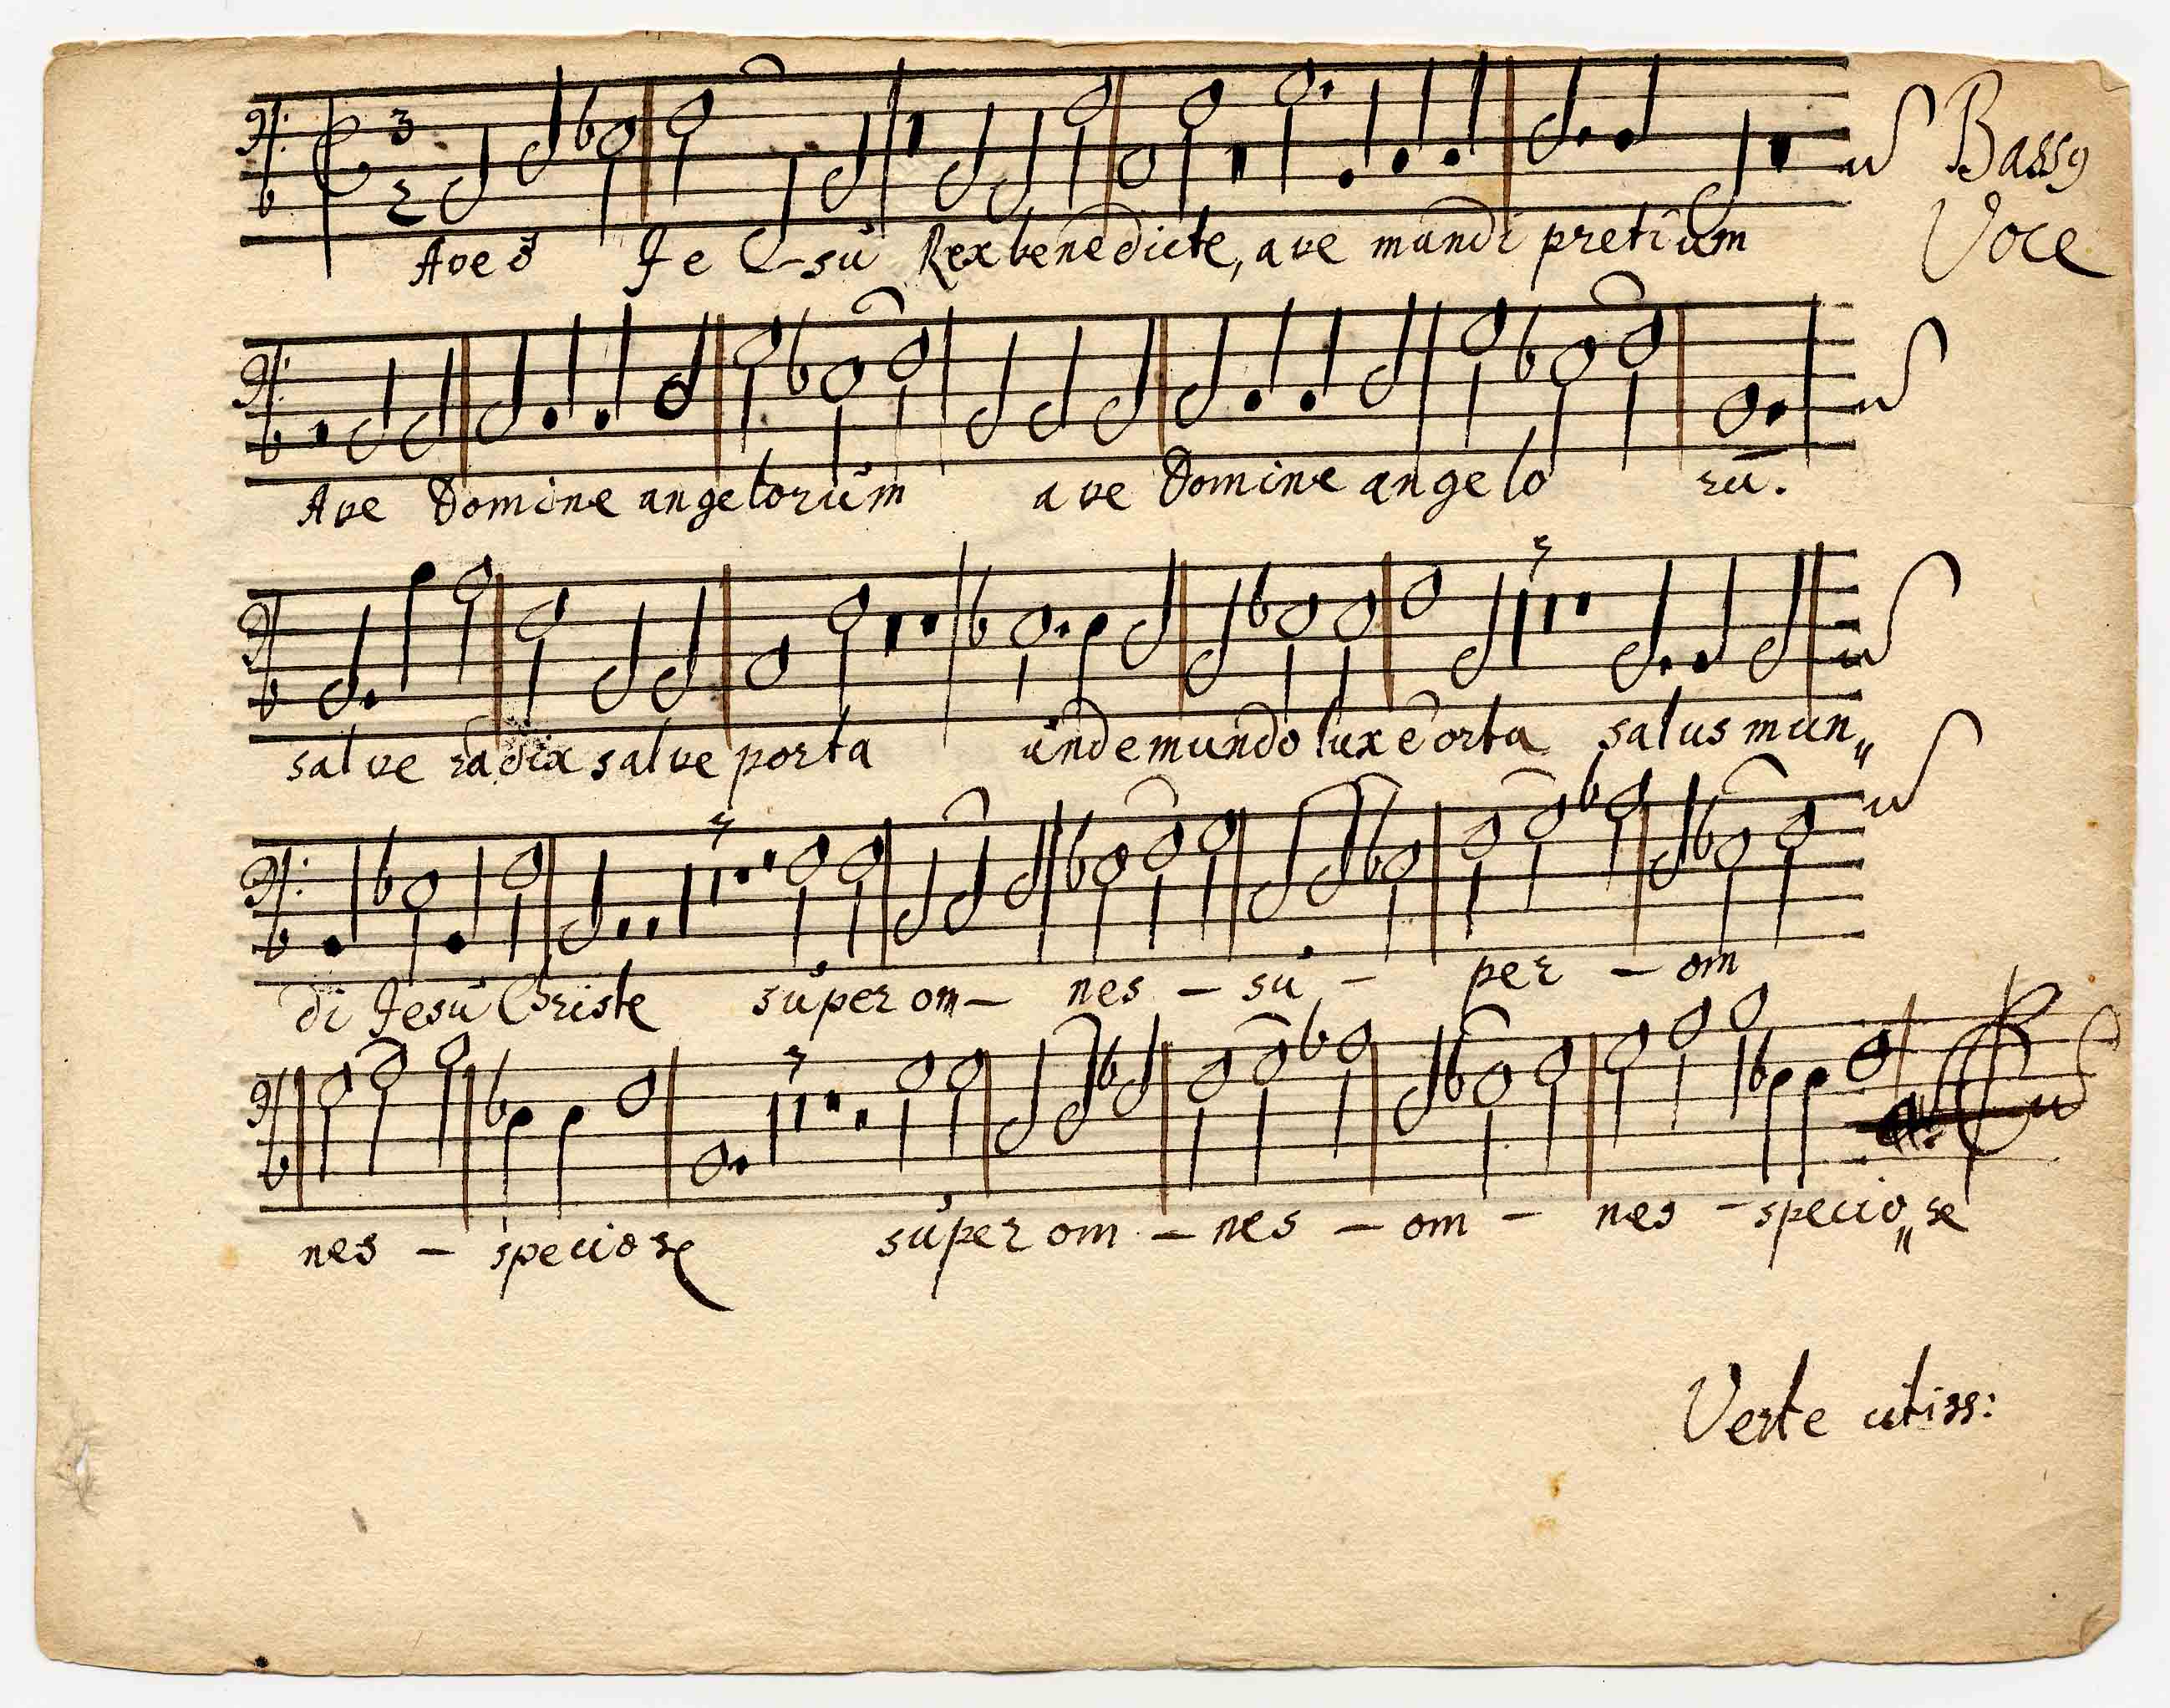 Bassꝰ
Voce
3
2
Ave ő Je - sŭ Rex benedicte, ave mundi pretium
Ave Domine angelorŭm ave Domine angelo rū.
salve radix salve porta ŭnde mundo lux ē orta salus mun„
di Jesŭ Christe sŭper om— nes — sŭ — per — om
nes — speciose sŭper om — nes — om — nes — specio„se
Verte citiss: